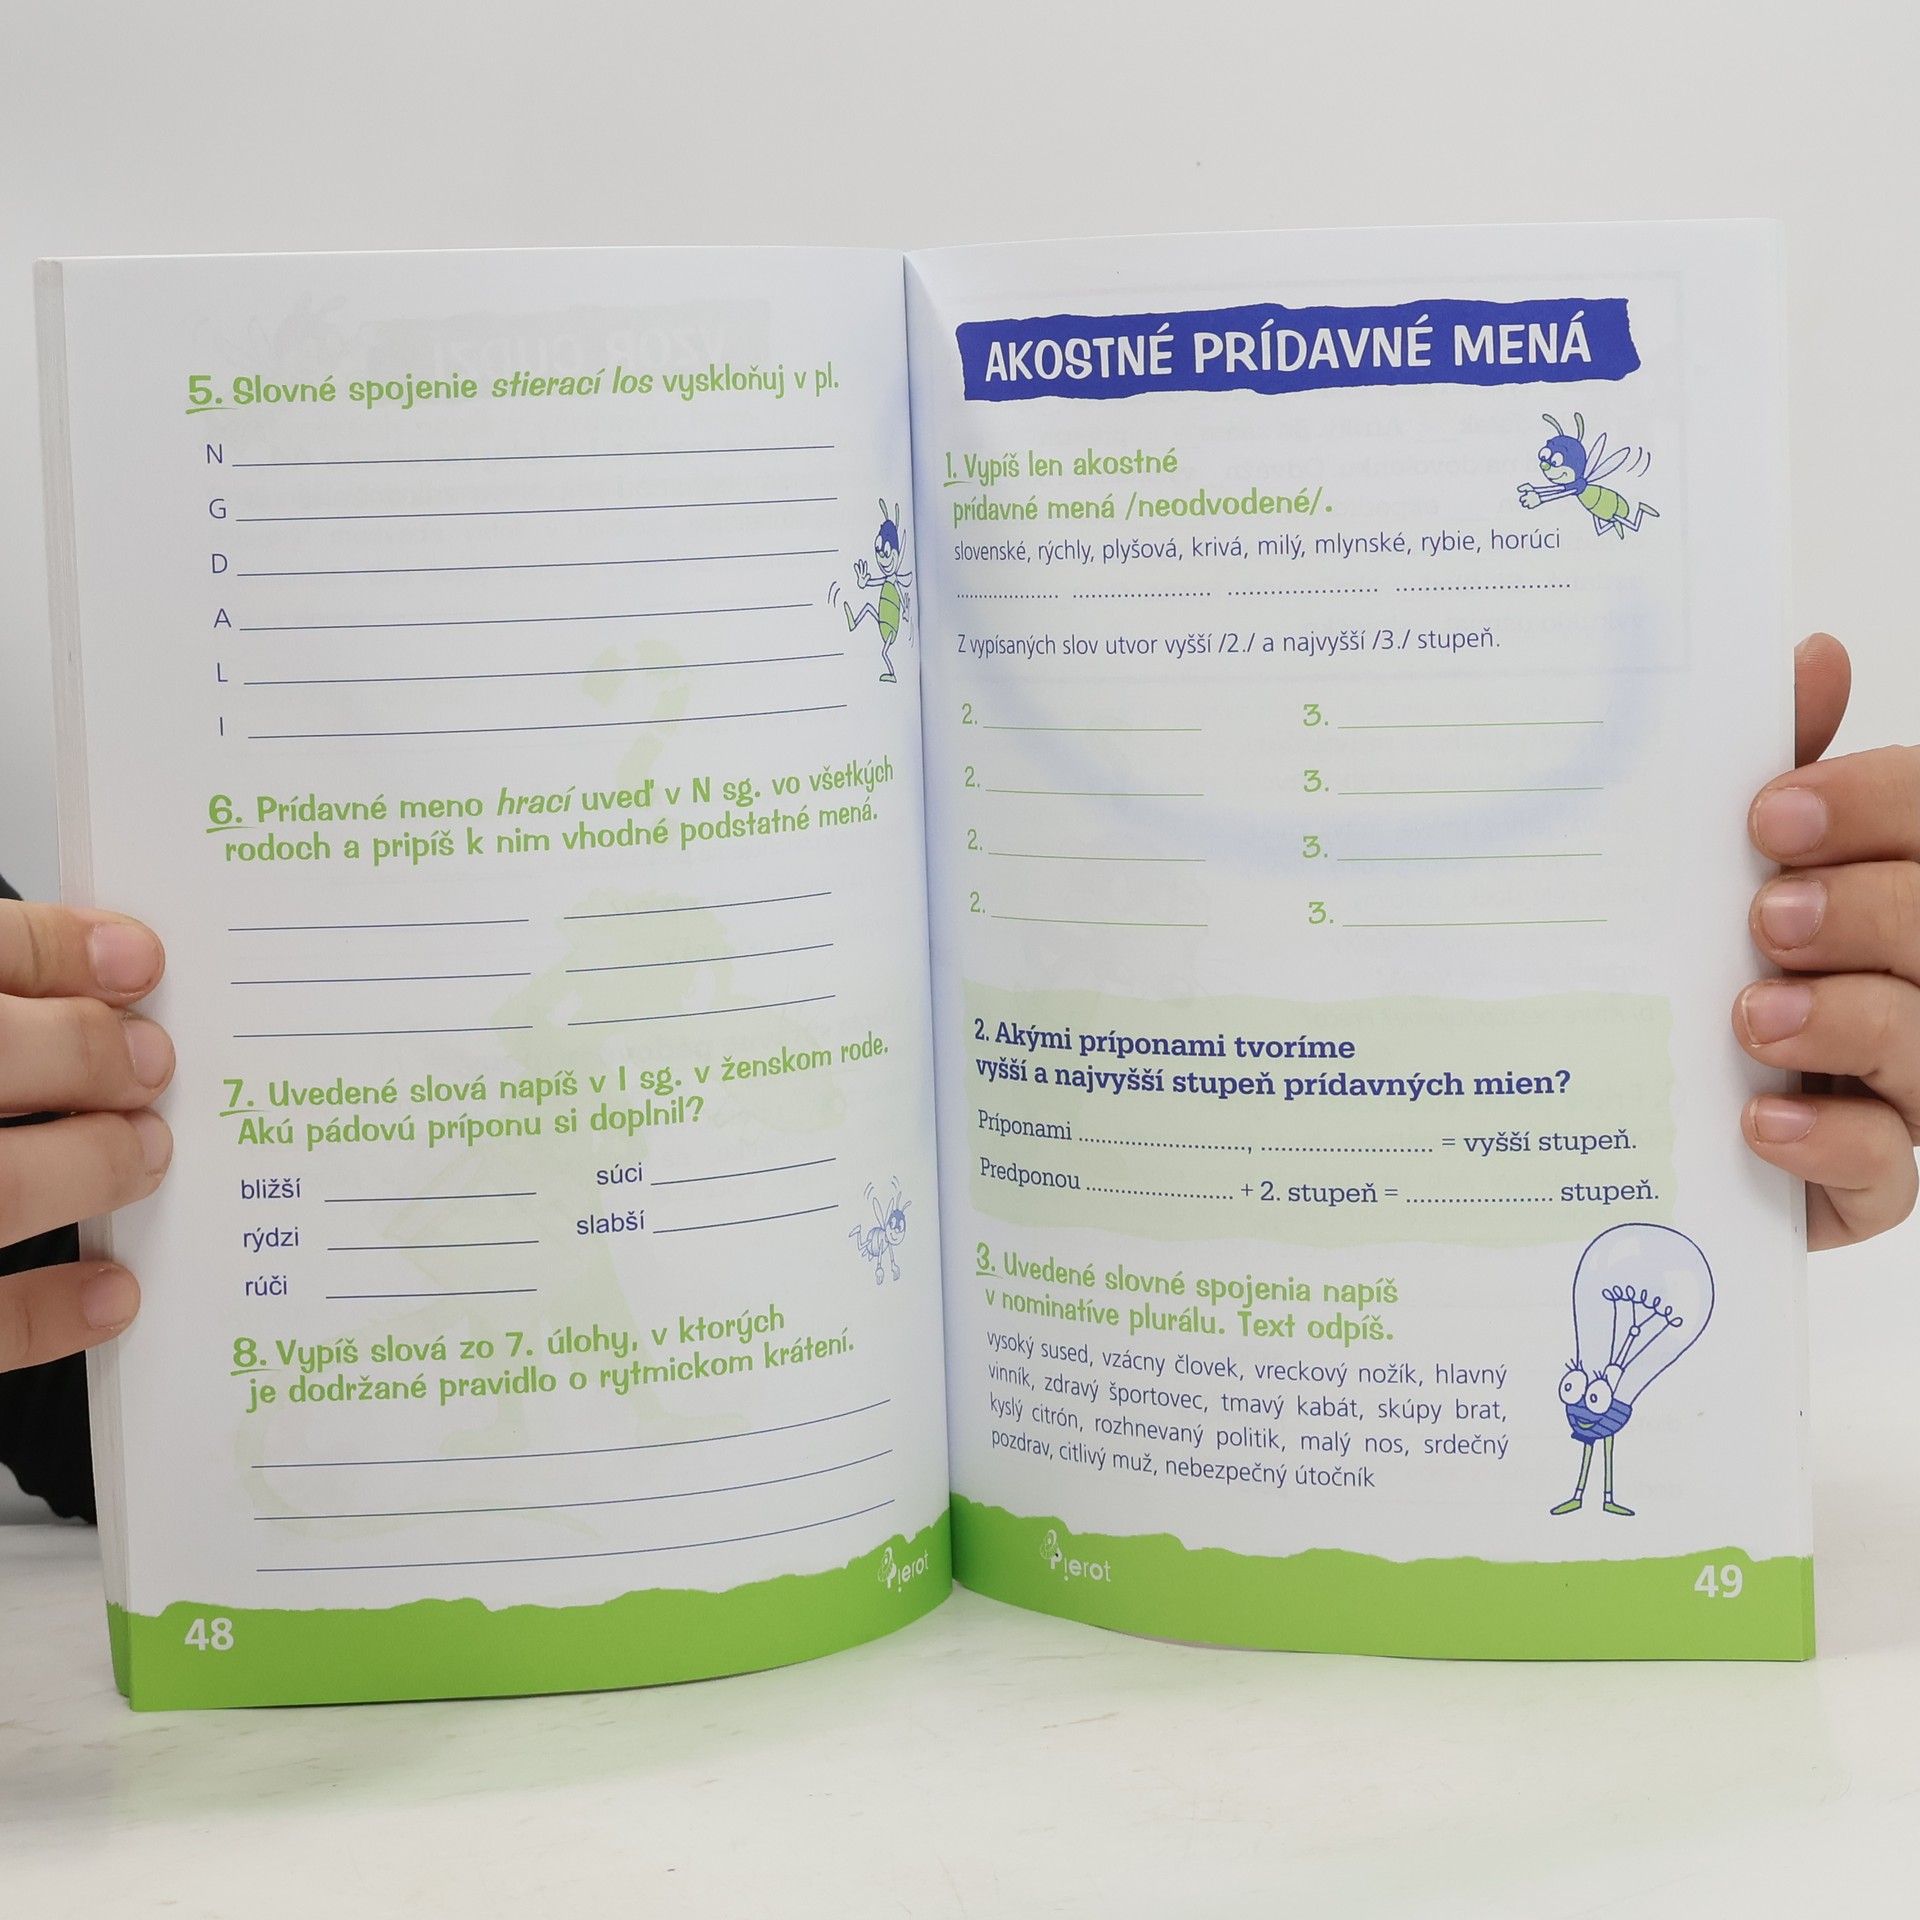 5. Slovné spojenie stierací los vyskloňuj v pl.
N
G
D
A
L
I
6. Prídavné meno hrací uveď v N sg. vo všetkých
rodoch a pripíš k nim vhodné podstatné mená.
7. Uvedené slová napíš v I sg. v ženskom rode.
Akú pádovú príponu si doplnil?
bližší súci
rýdzi slabší
rúči
8. Vypíš slová zo 7. úlohy, v ktorých
je dodržané pravidlo o rytmickom krátení.
Pierot
48
AKOSTNÉ PRÍDAVNÉ MENÁ
1. Vypíš len akostné
prídavné mená /neodvodené/.
slovenské, rýchly, plyšová, krivá, milý, mlynské, rybie, horúci
Z vypísaných slov utvor vyšší /2./ a najvyšší /3./ stupeň.
2. 3.
2. 3.
2. 3.
2. 3.
2. Akými príponami tvoríme
vyšší a najvyšší stupeň prídavných mien?
Príponami ........................., ......................... = vyšší stupeň.
Predponou ...................... + 2. stupeň = ...................... stupeň.
3. Uvedené slovné spojenia napíš
v nominatíve plurálu. Text odpíš.
vysoký sused, vzácny človek, vreckový nožík, hlavný
vinník, zdravý športovec, tmavý kabát, skúpy brat,
kyslý citrón, rozhnevaný politik, malý nos, srdečný
pozdrav, citlivý muž, nebezpečný útočník
Pierot
49